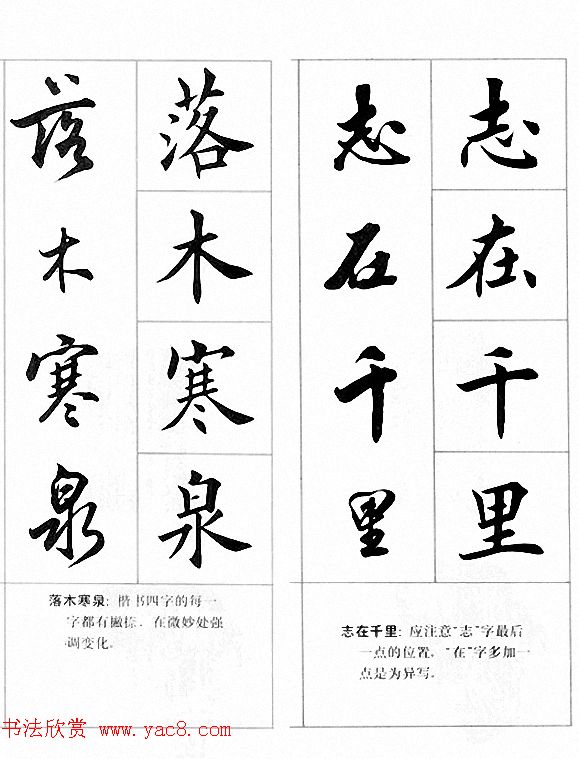 落 落
木 木
寒 寒
泉 泉
落木寒泉: 楷书四字的每一
字都有撇捺. 在微妙处强
调变化.
志 志
在 在
千 千
里 里
志在千里: 应注意“志”字最后
一点的位置. “在”字多加一
点是为异写.
书法欣赏 www.yac8.com